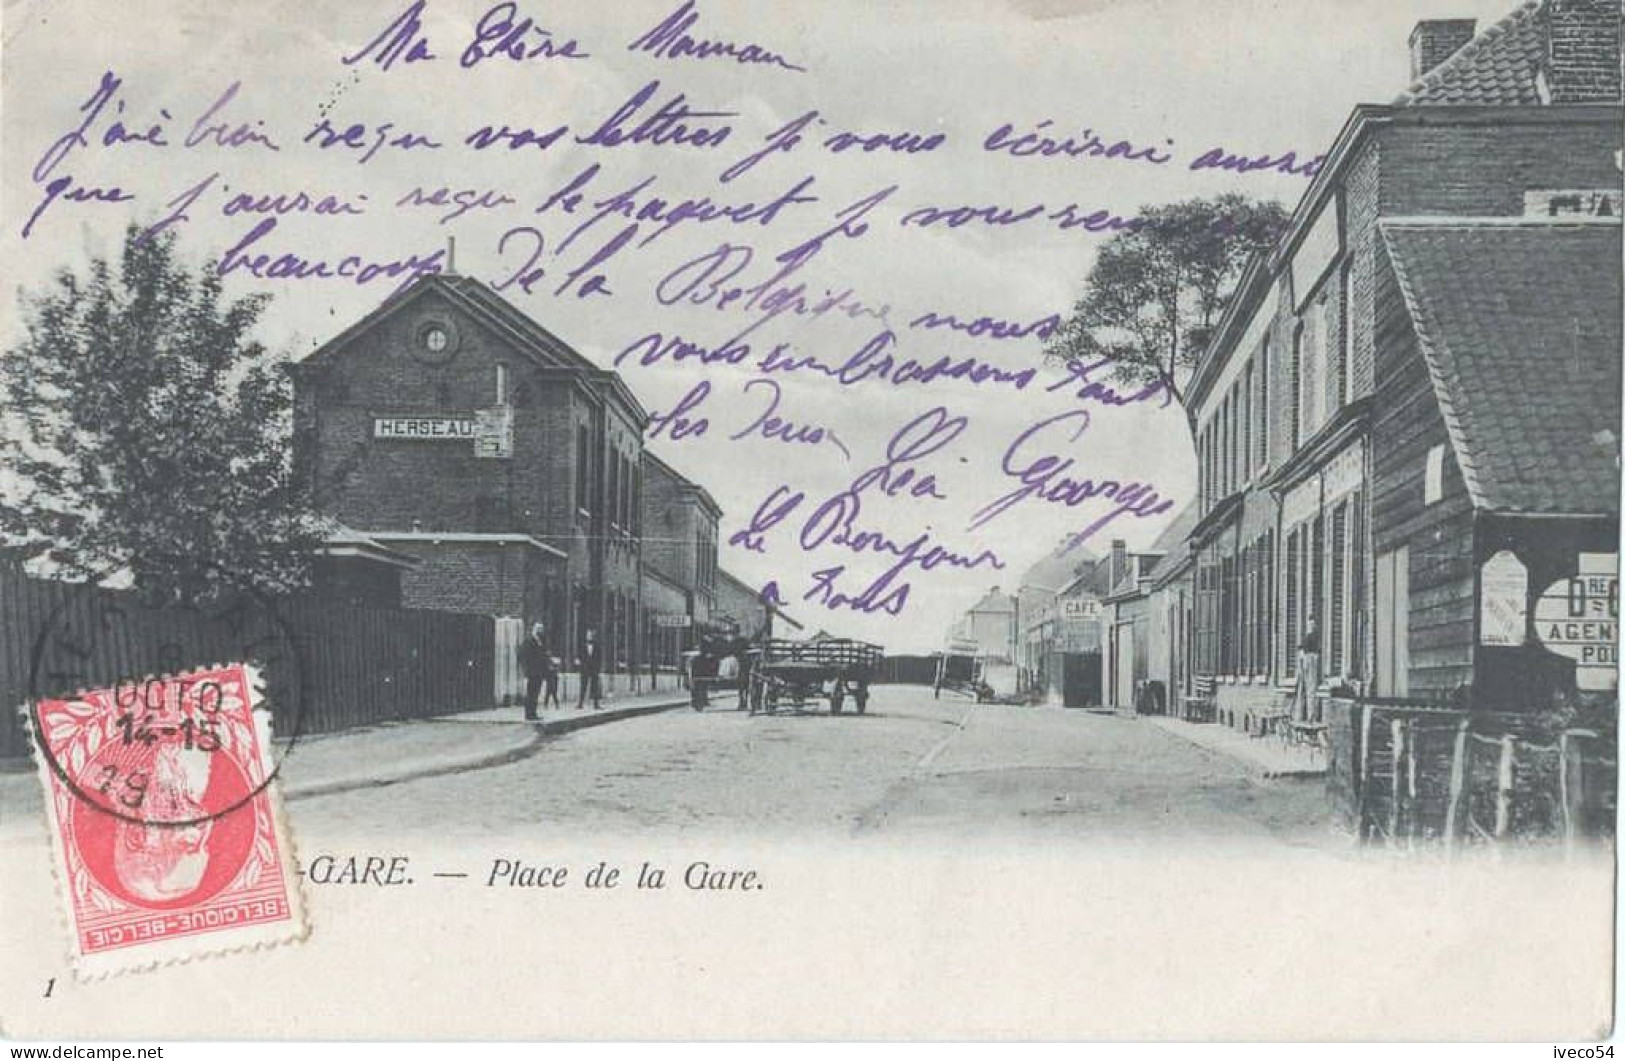 Ma Chère Maman
J'aie bien reçu vos lettres je vous écrirai aussi
que j'aurai reçu le paquet je vous
beaucoup De la Belgique nous
vous embrassons tout
les Deux
Léa Georges
Le Bonjour
a tous
HERSEAU
CAFÉ
DRE
AGEN
POL
OCTO
14-15
191
BELGIQUE-BELGIE
-GARE. — Place de la Gare.
1
iveco54